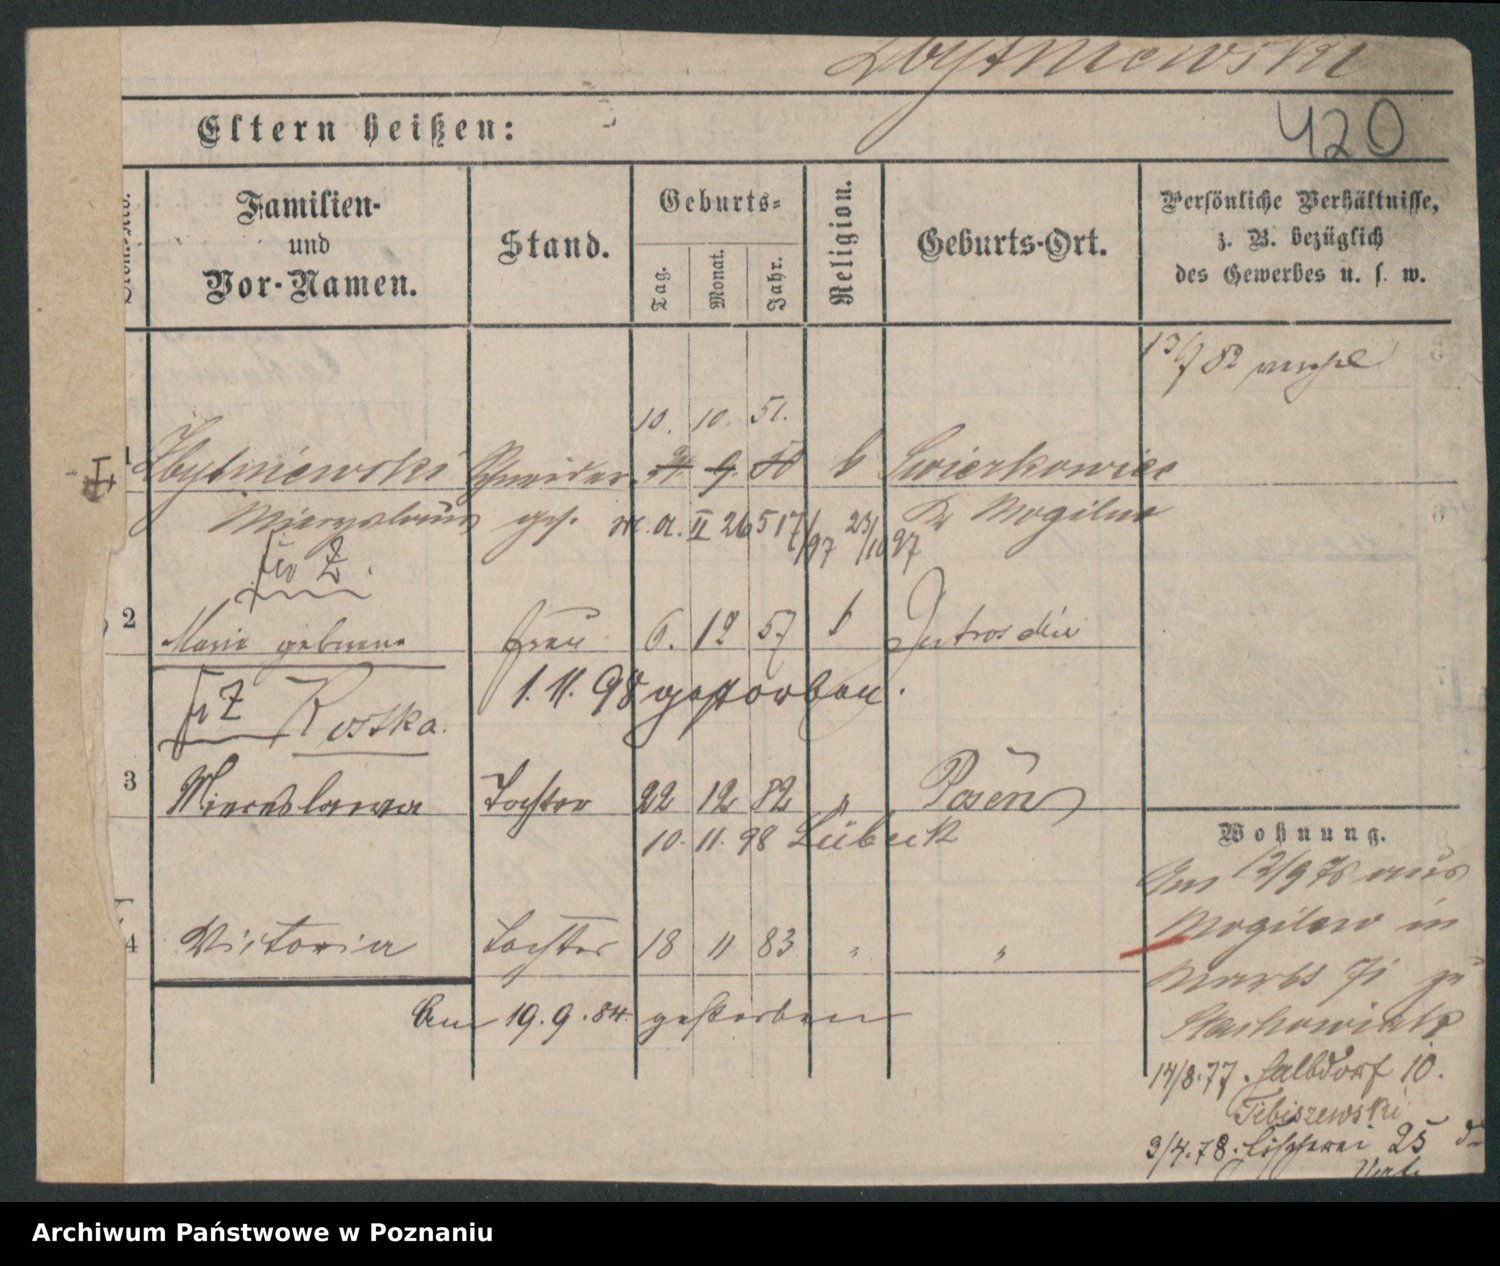 Zbytniewski
420
Eltern heißen:
Familien-
und
Vor-Namen.
Stand.
Geburts-
Tag.
Monat.
Jahr.
Religion.
Geburts-Ort.
Persönliche Verhältnisse,
z. B. bezüglich
des Gewerbes u. s. w.
13/9 82
10. 10. 51.
1 Zbytniewski Schneider 9. 50 k Swierkowiec
gest. II 26 517/97 23/10 97 Kr Mogilno
Z.
2 Marie geborene Frau 6. 12 57 k Jutroschin
1. 11. 98 gestorben.
Z Kostka.
3 Miecislawa Tochter 22 12 82 " Posen
10. 11. 98 Lübeck
4 Victoria Tochter 18 11 83 " "
Am 19. 9. 84 gestorben
Wohnung.
Am 12/9 76 aus
Mogilno in
Markt 71 zu
Stachowiak
14/8.77. Halbdorf 10.
Tibiszewski
3/4.78. Fischerei 25
Archiwum Państwowe w Poznaniu